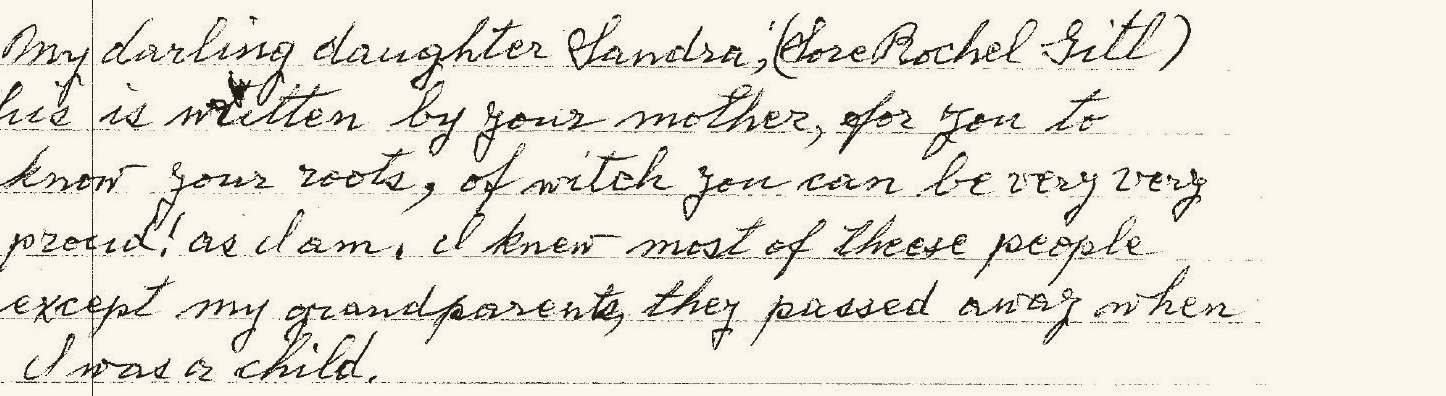 My darling daughter Sandra, (Sore Rochel Gitl)
his is written by your mother, for you to
know your roots, of witch you can be very very
proud! as I am. I knew most of theese people
except my grandparents, they passed away when
I was a child.